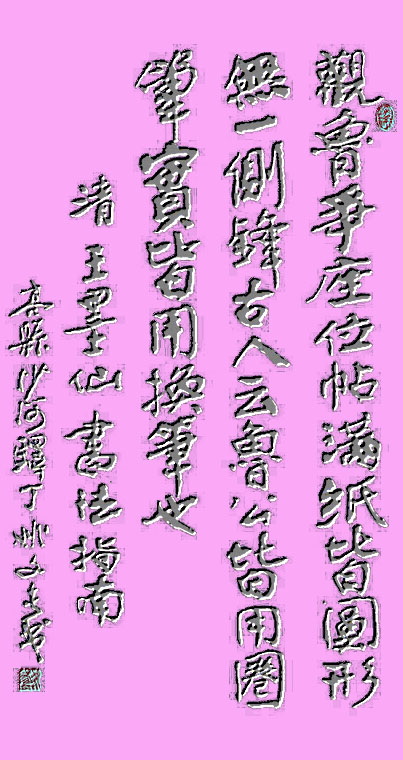 觀魯爭座位帖滿紙皆圓形
無一側鋒古人云魯公皆用圈
筆實皆用換筆也
清 王墨仙書法指南
沙河驛丁